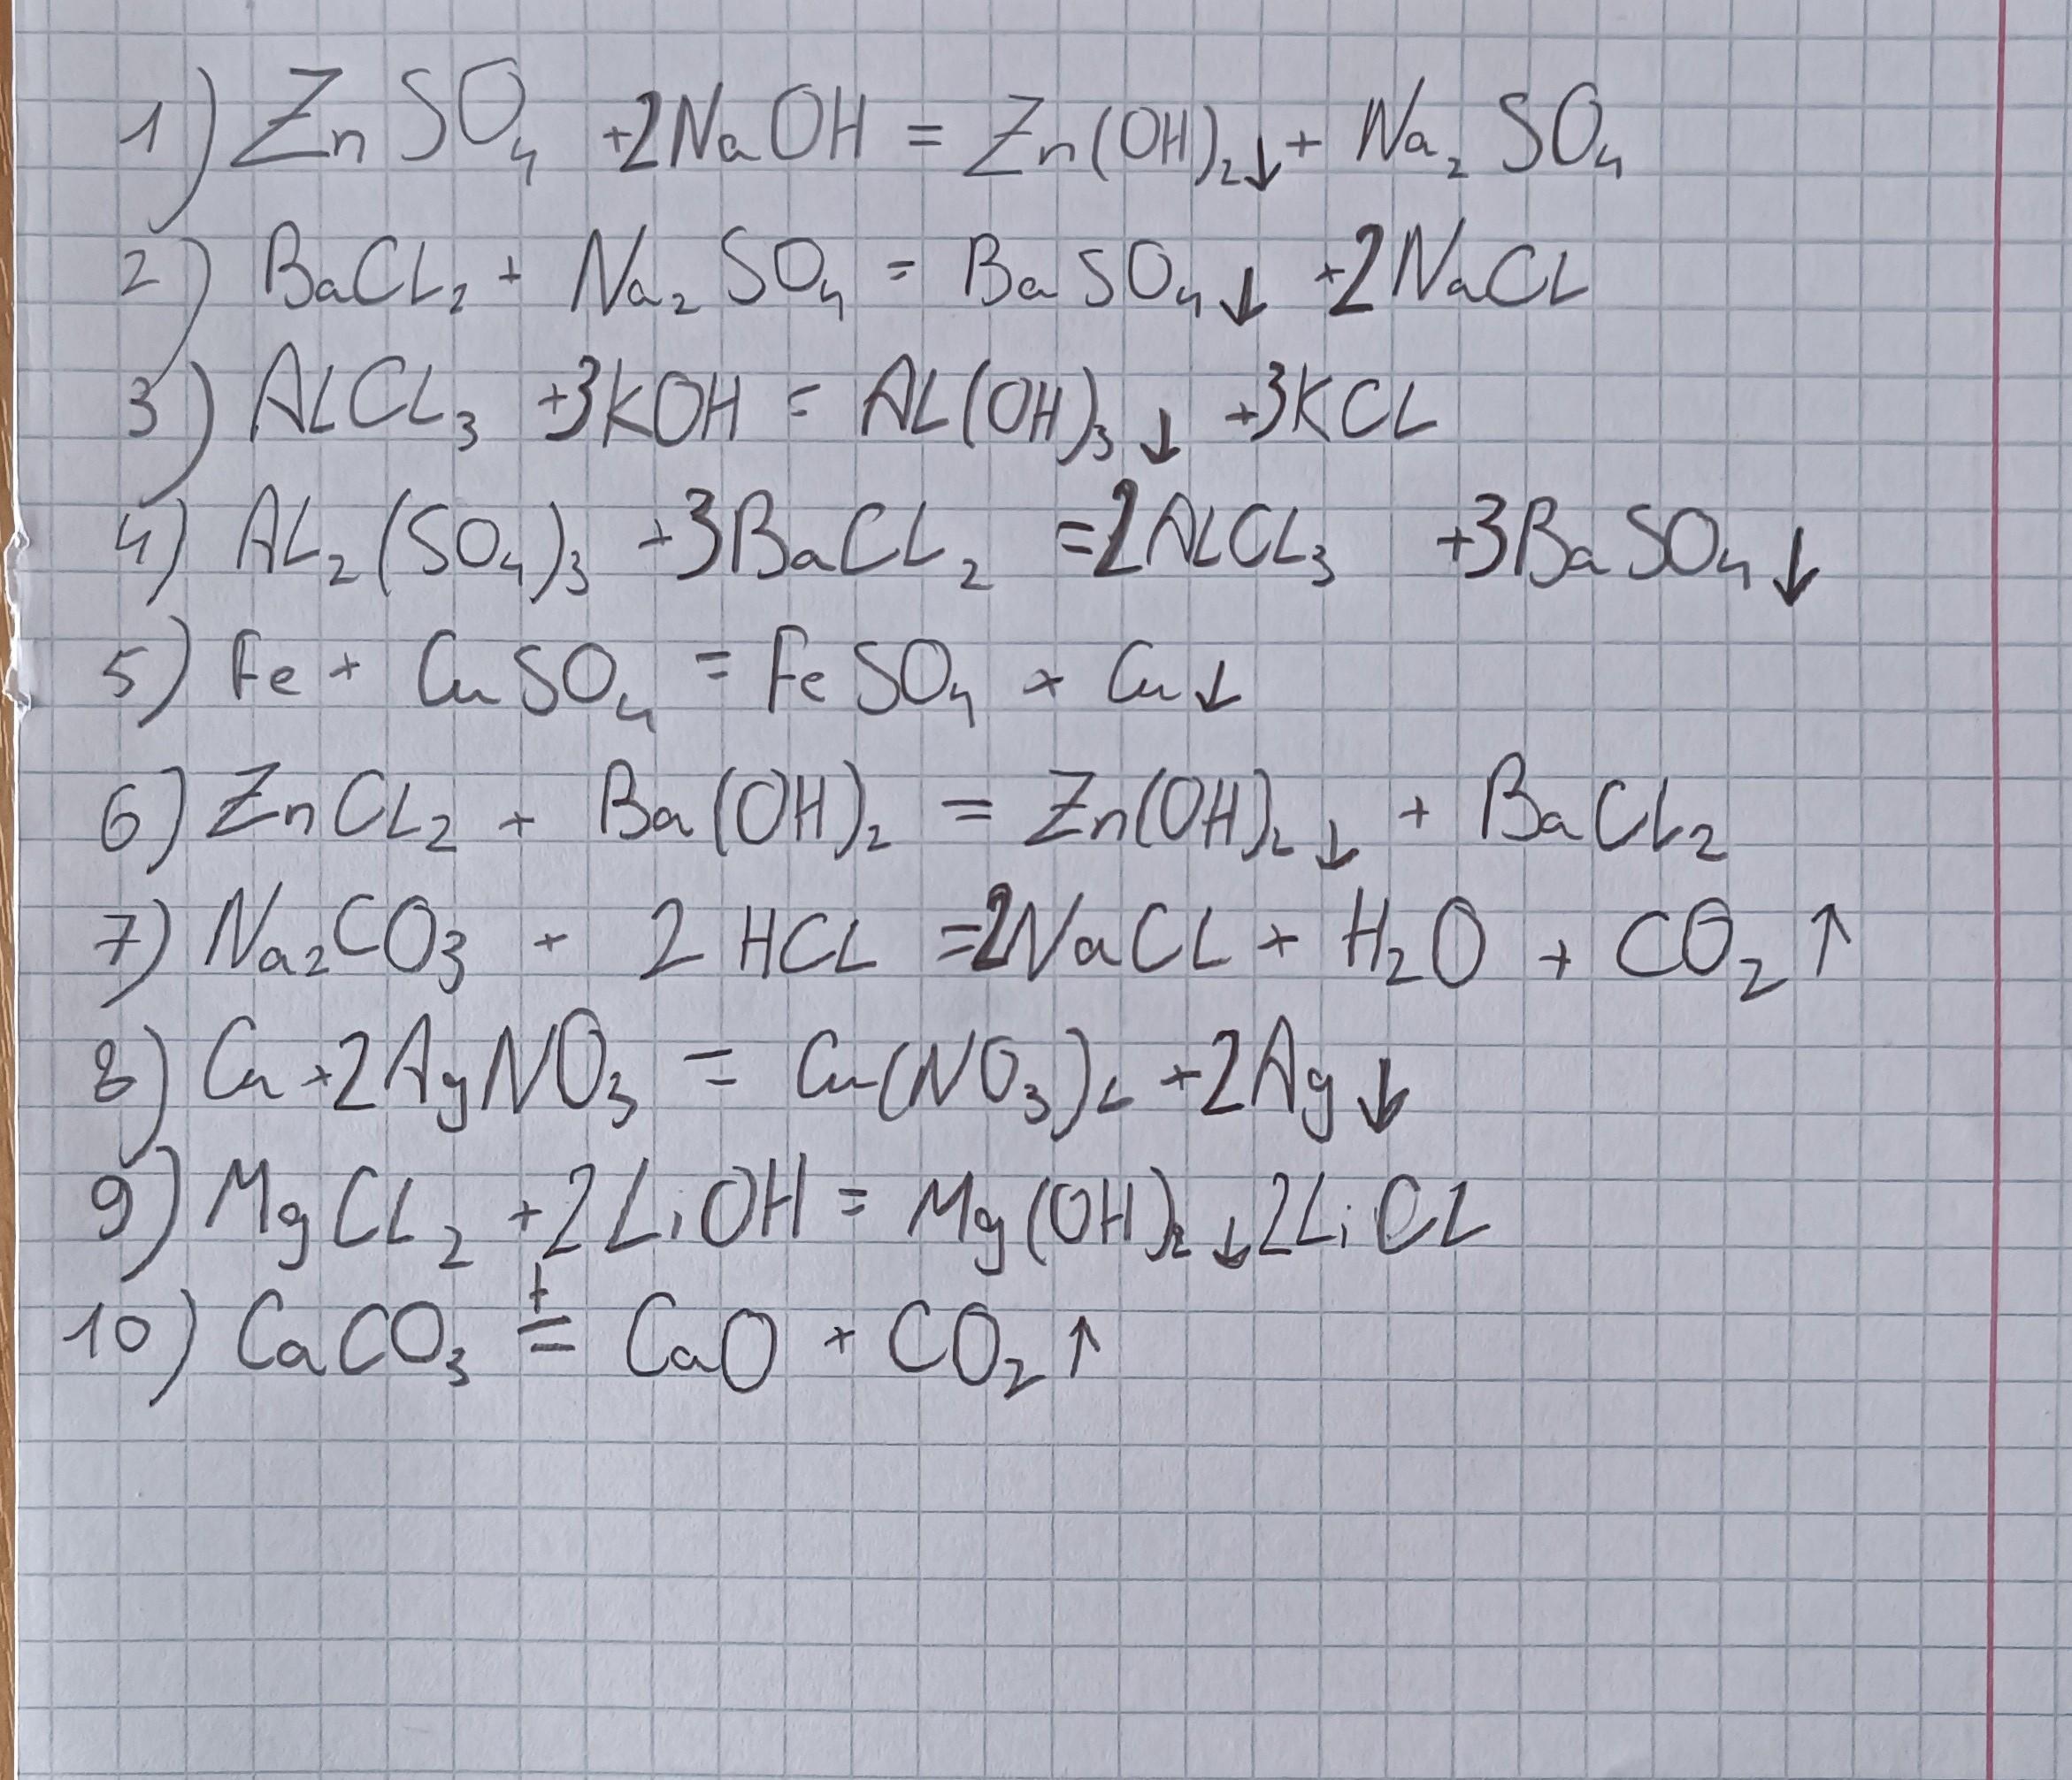 1) ZnSO₄ +2NaOH = Zn(OH)₂↓ + Na₂SO₄
2) BaCL₂ + Na₂SO₄ = BaSO₄↓ +2NaCL
3) ALCL₃ +3KOH = AL(OH)₃↓ +3KCL
4) AL₂(SO₄)₃ +3BaCL₂ =2ALCL₃ +3BaSO₄↓
5) Fe + CuSO₄ = FeSO₄ + Cu↓
6) ZnCL₂ + Ba(OH)₂ = Zn(OH)₂↓ + BaCL₂
7) Na₂CO₃ + 2HCL =2NaCL + H₂O + CO₂↑
8) Cu +2AgNO₃ = Cu(NO₃)₂ +2Ag↓
9) MgCL₂ +2LiOH = Mg(OH)₂↓2LiCL
10) CaCO₃ =ᵗ CaO + CO₂↑